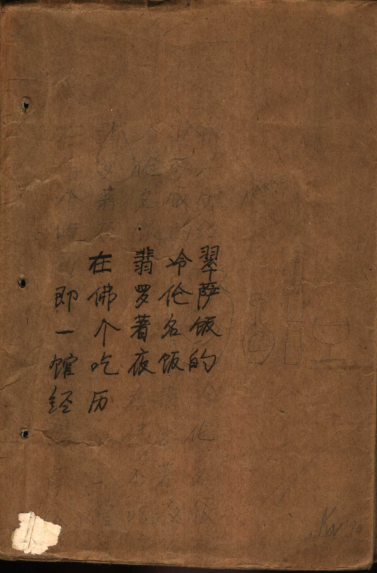 在翡冷翠
即佛罗伦萨
一个著名饭
馆吃夜饭的
经历